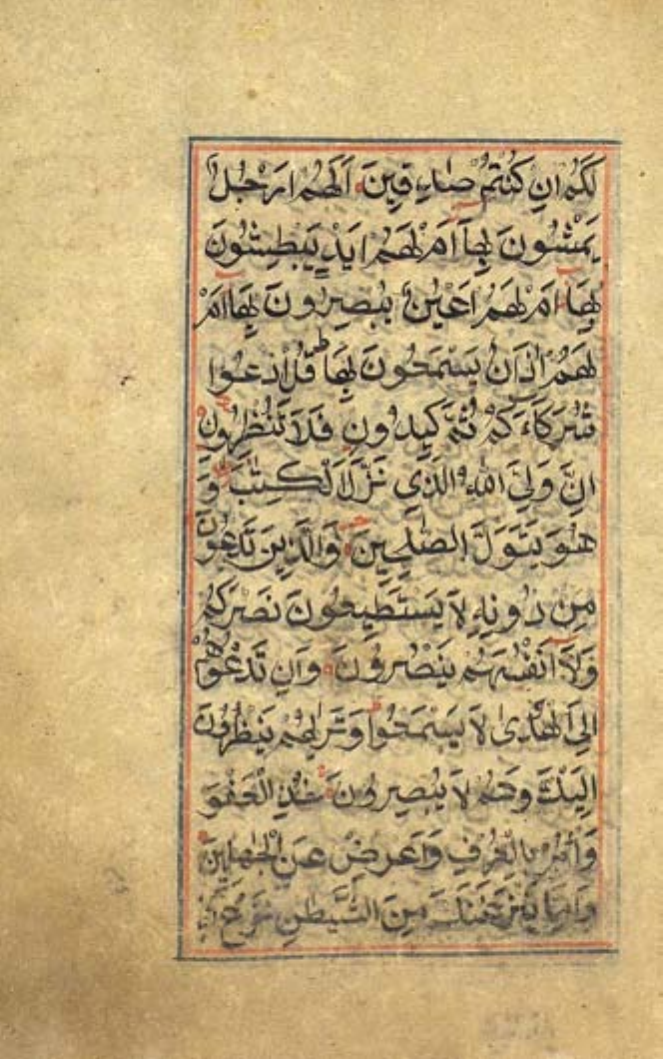 لَكُمْ اِنْ كُنْتُمْ صٰدِقِينَ اَلَهُمْ اَرْجُلٌ
يَمْشُونَ بِهَا اَمْ لَهُمْ اَيْدٍ يَبْطِشُونَ
بِهَا اَمْ لَهُمْ اَعْيُنٌ يُبْصِرُونَ بِهَا اَمْ
لَهُمْ اٰذَانٌ يَسْمَعُونَ بِهَا ط قُلِ ادْعُوا
شُرَكَاءَكُمْ ثُمَّ كِيدُونِ فَلَا تُنْظِرُونِ
اِنَّ وَلِيَّ اللّٰهُ الَّذِي نَزَّلَ الْكِتٰبَ وَ
هُوَ يَتَوَلَّى الصّٰلِحِينَ وَالَّذِينَ تَدْعُونَ
مِنْ دُونِهِ لَا يَسْتَطِيعُونَ نَصْرَكُمْ
وَلَا اَنْفُسَهُمْ يَنْصُرُونَ وَاِنْ تَدْعُوهُمْ
اِلَى الْهُدٰى لَا يَسْمَعُوا وَتَرٰىهُمْ يَنْظُرُونَ
اِلَيْكَ وَهُمْ لَا يُبْصِرُونَ خُذِ الْعَفْوَ
وَأْمُرْ بِالْعُرْفِ وَاَعْرِضْ عَنِ الْجٰهِلِينَ
وَاِمَّا يَنْزَغَنَّكَ مِنَ الشَّيْطٰنِ نَزْغٌ